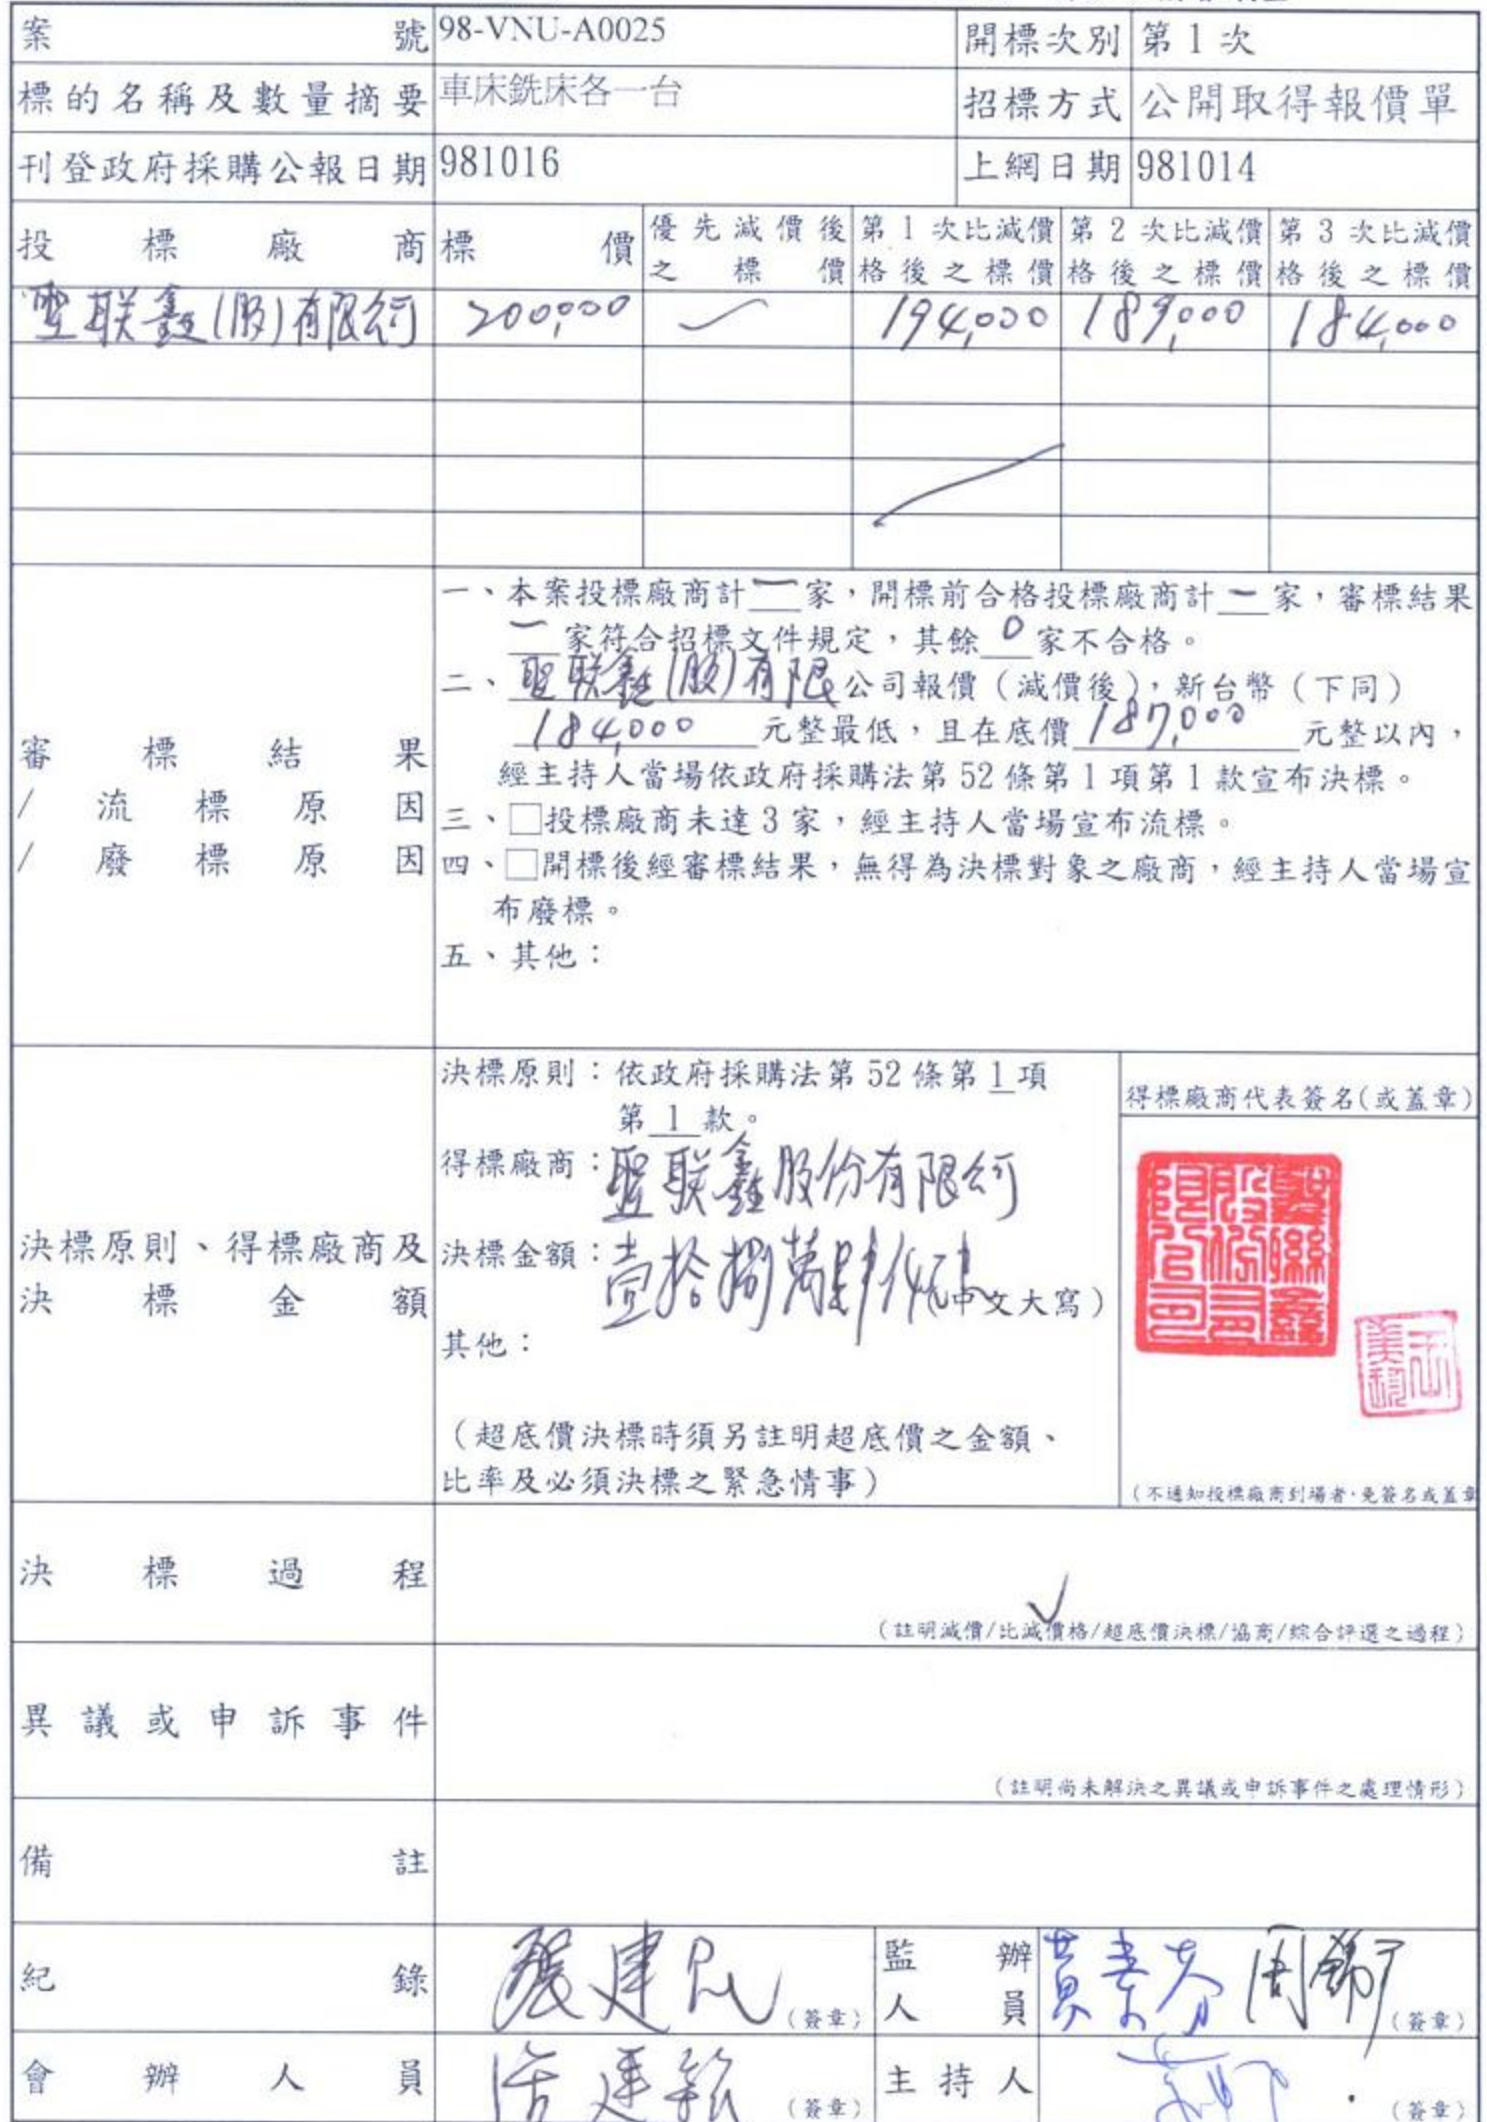 案號 98-VNU-A0025 開標次別 第1次
標的名稱及數量摘要 車床銑床各一台 招標方式 公開取得報價單
刊登政府採購公報日期 981016 上網日期 981014
投標廠商 標價 優先減價後之標價 第1次比減價格後之標價 第2次比減價格後之標價 第3次比減價格後之標價
聖联鑫(股)有限公司 200,000 194,000 189,000 184,000
審標結果
/流標原因
/廢標原因
一、本案投標廠商計一家，開標前合格投標廠商計一家，審標結果
一家符合招標文件規定，其餘0家不合格。
二、聖联鑫(股)有限公司報價（減價後），新台幣（下同）
184,000元整最低，且在底價187,000元整以內，
經主持人當場依政府採購法第52條第1項第1款宣布決標。
三、□投標廠商未達3家，經主持人當場宣布流標。
四、□開標後經審標結果，無得為決標對象之廠商，經主持人當場宣
布廢標。
五、其他：
決標原則、得標廠商及
決標金額
決標原則：依政府採購法第52條第1項
第1款。
得標廠商：聖联鑫股份有限公司
決標金額：壹拾捌萬肆仟元(中文大寫）
其他：
（超底價決標時須另註明超底價之金額、
比率及必須決標之緊急情事）
得標廠商代表簽名(或蓋章)
聖聯鑫股份有限公司
（不通知投標廠商到場者，免簽名或蓋章
決標過程
（註明減價/比減價格/超底價決標/協商/綜合評選之過程）
異議或申訴事件
（註明尚未解決之異議或申訴事件之處理情形）
備註
紀錄 張建民 （簽章） 監辦人員 黃素芬 （簽章）
會辦人員 （簽章） 主持人 （簽章）